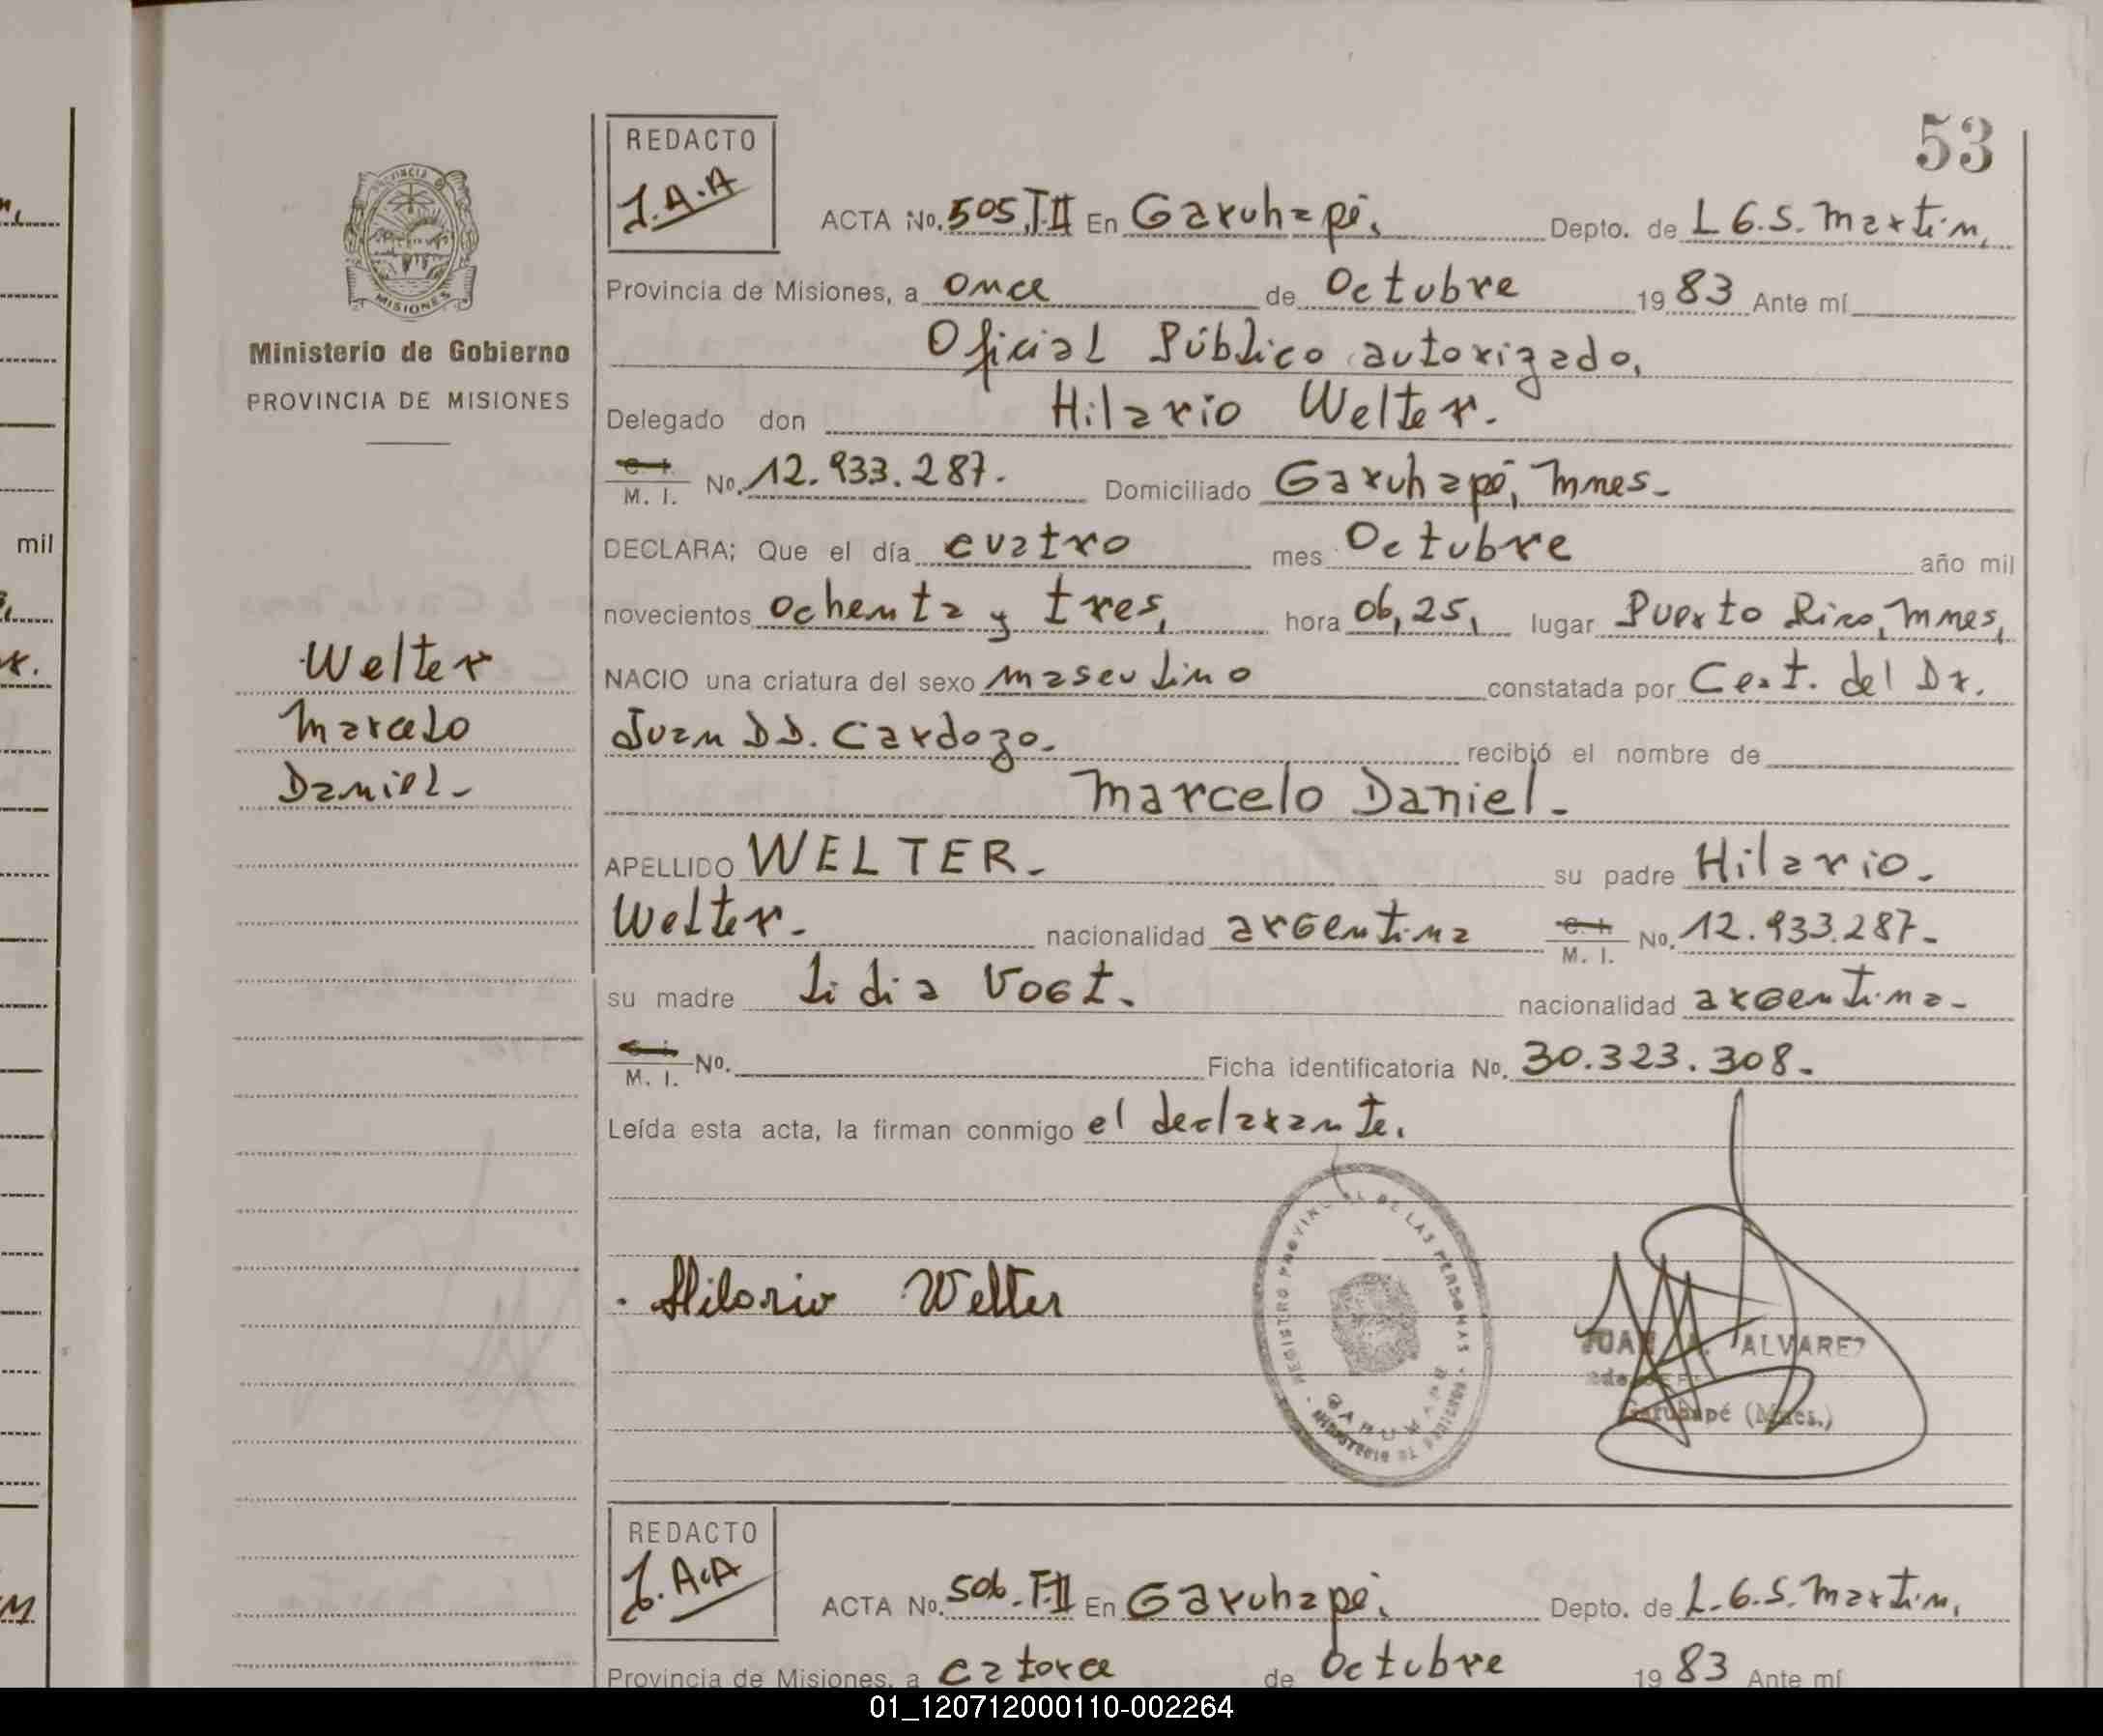 53
REDACTO
J.A.A
ACTA No. 505,T.II En Garuhapé, Depto. de L G.S. Martín,
PROVINCIA DE
MISIONES
Ministerio de Gobierno
PROVINCIA DE MISIONES
Provincia de Misiones, a once de Octubre 1983 Ante mí
Oficial Público autorizado,
Delegado don Hilario Welter.
C. I.
M. I. No. 12.933.287. Domiciliado Garuhapé, Mnes-
DECLARA; Que el día cuatro mes Octubre año mil
novecientos ochenta y tres, hora 06,25, lugar Puerto Rico, Mnes,
NACIO una criatura del sexo masculino constatada por Cert. del Dr.
Juan DD. Cardozo. recibió el nombre de
Marcelo Daniel-
APELLIDO WELTER- su padre Hilario.
Welter- nacionalidad argentina C. I. M. I. No. 12.933.287-
su madre Lidia Vogt. nacionalidad argentina-
C. I.
M. I. No. Ficha identificatoria No. 30.323.308-
Leída esta acta, la firman conmigo el declarante.
Welter
Marcelo
Daniel-
mil
Hilario Welter
REGISTRO PROVINCIAL DE LAS PERSONAS
JUAN A. ALVAREZ
Garuhapé (Mnes.)
REDACTO
J.A.A
ACTA No. 506.T.II En Garuhapé, Depto. de L.G.S. Martín,
Provincia de Misiones, a catorce de Octubre 1983 Ante mí
01_120712000110-002264